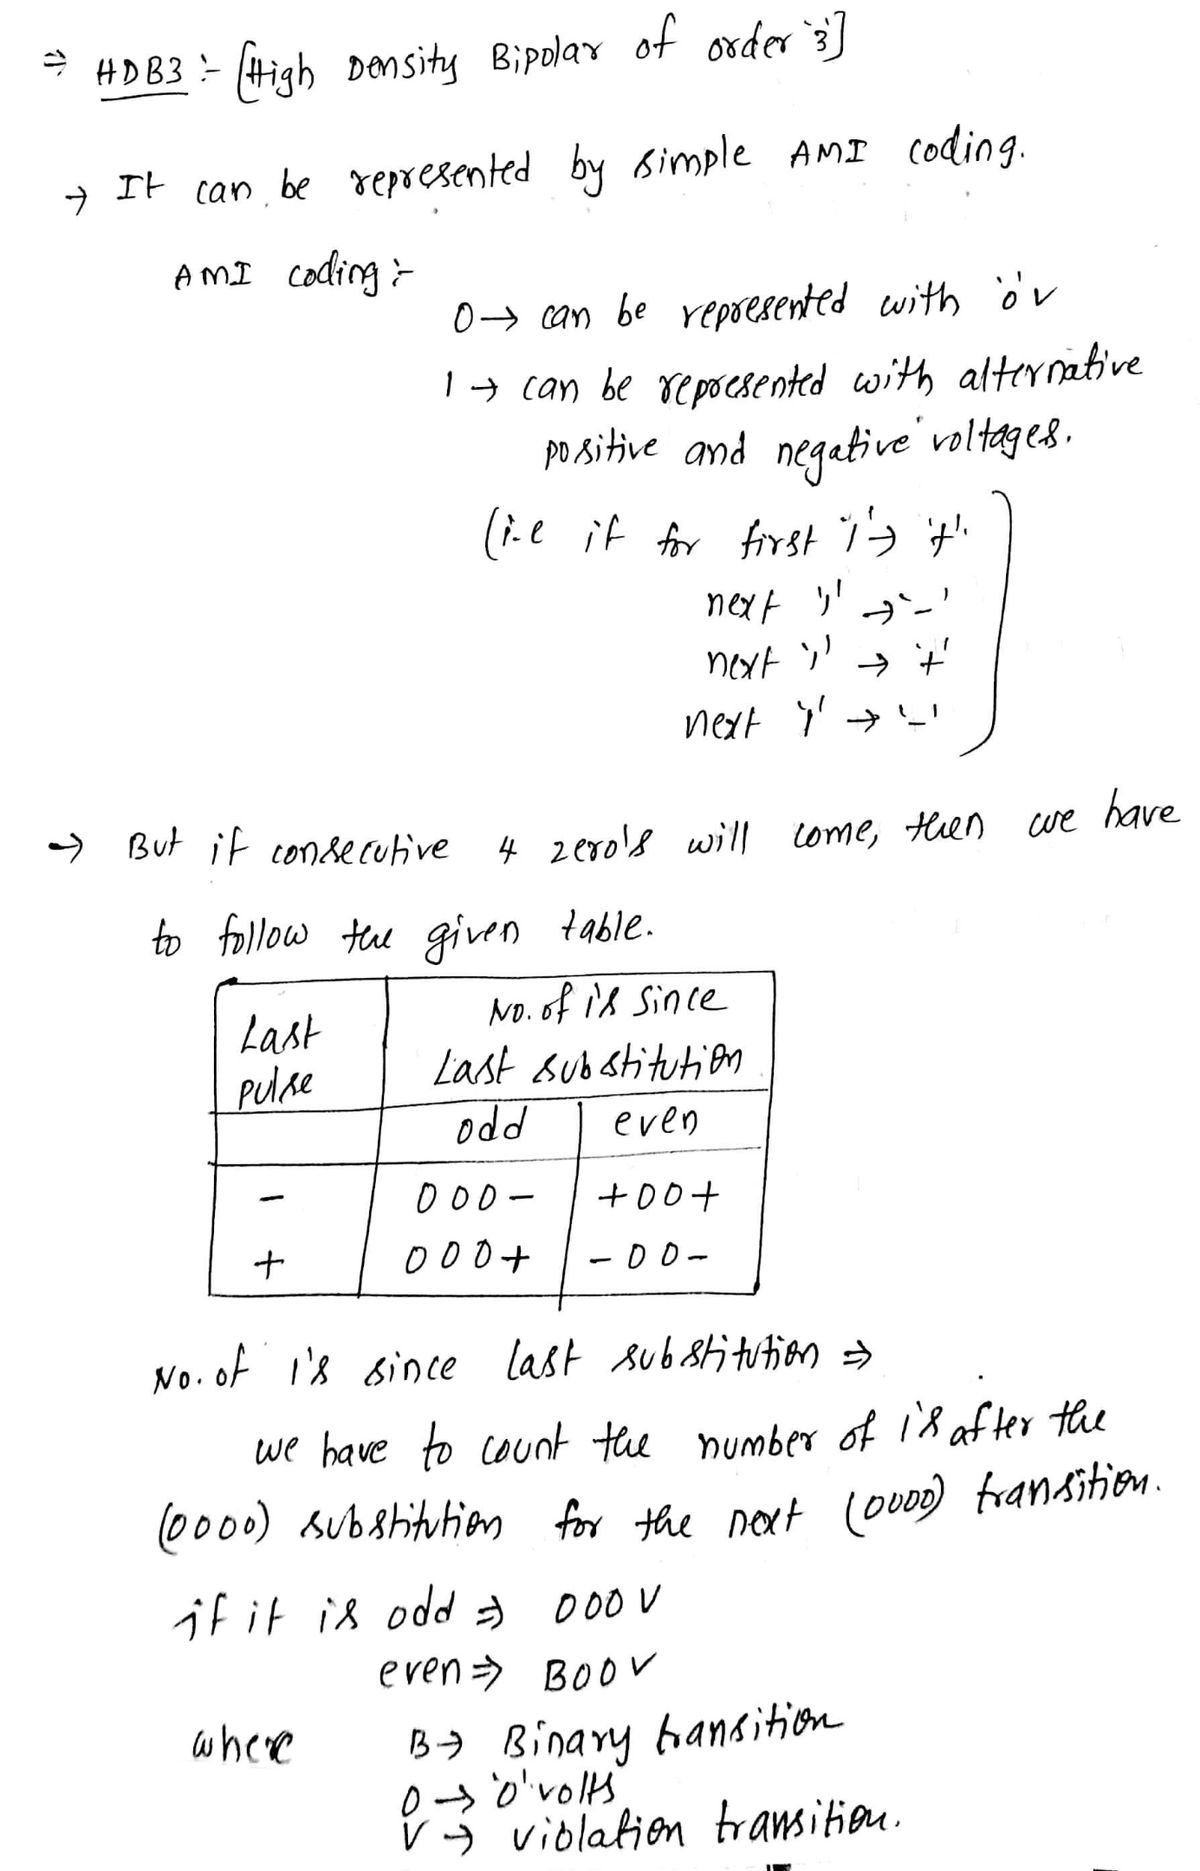 ⇒ HDB3 :- [High Density Bipolar of order '3']
→ It can be represented by simple AMI coding.
AMI coding :-
0 → can be represented with '0' v
1 → can be represented with alternative
positive and negative voltages.
(i.e if for first '1' → '+'.
next '1' → '-'
next '1' → '+'
next '1' → '-')
→ But if consecutive 4 zero's will come, then we have
to follow the given table.
Last pulse | No. of 1's since
Last substitution
odd | even
- | 000- | +00+
+ | 000+ | -00-
No. of 1's since last substitution ⇒
we have to count the number of 1's after the
(0000) substitution for the next (0000) transition.
if it is odd ⇒ 000V
even ⇒ B00V
where B → Binary transition
0 → '0' volts
V → violation transition.